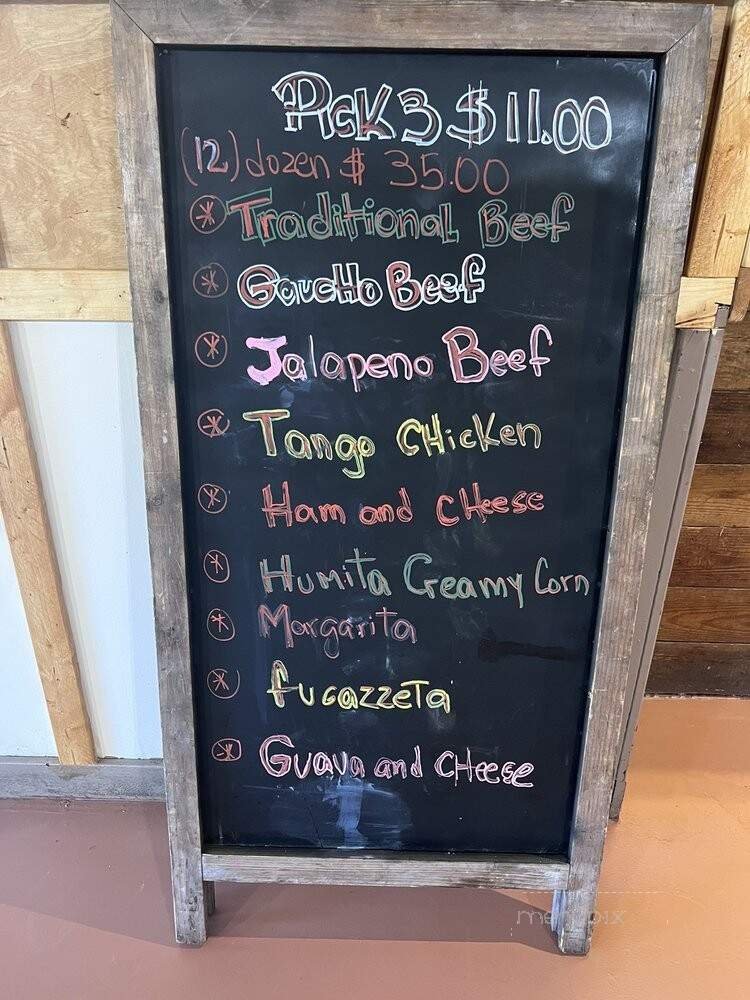 Pick 3 $11.00
(12) dozen $ 35.00
* Traditional Beef
* Gaucho Beef
* Jalapeno Beef
* Tango Chicken
* Ham and cheese
* Humita Creamy Corn
* Margarita
* fucazzeta
* Guava and cheese
menupix